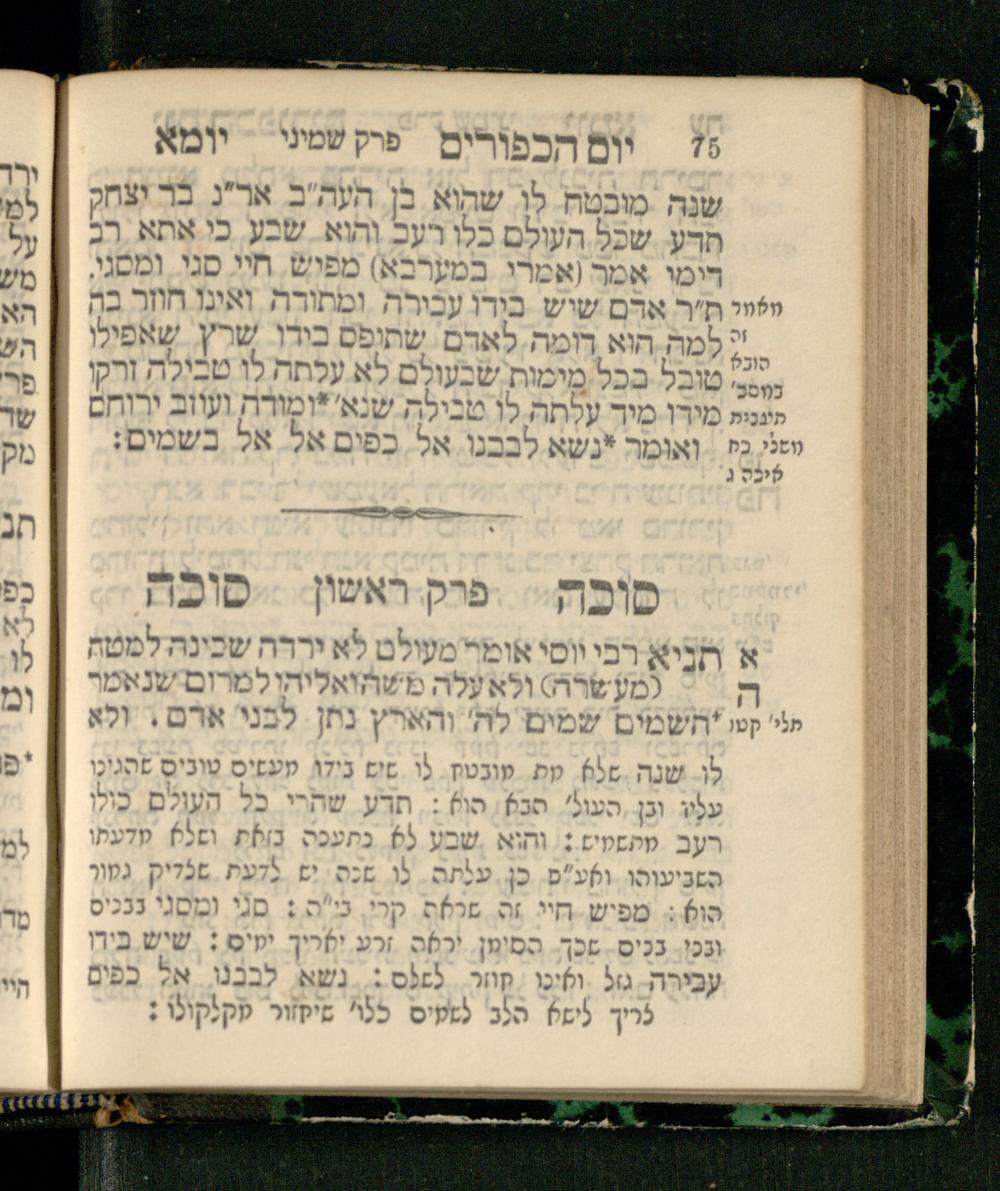 75 יום הכפורים פרק שמיני יומא
שנה מובטח לו שהוא בן העה״ב אר״נ בר יצחק
תדע שכל העולם כלו רעב והוא שבע כי אתא רב
דימי אמר (אמרי במערבא) מפיש חיי סגי ומסגי.
ת״ר אדם שיש בידו עבירה ומתודה ואינו חוזר בה
למה הוא דומה לאדם שתופס בידו שרץ שאפילו
טובל בכל מימות שבעולם לא עלתה לו טבילה זרקו
מידו מיד עלתה לו טבילה שנא׳ *ומודה ועוזב ירוחם
ואומר *נשא לבבנו אל כפים אל אל בשמים:
מאמר
זה
הובא
במסכ׳
תענית
משלי כח
איכה ג
סוכה פרק ראשון סוכה
א תניא רבי יוסי אומר מעולם לא ירדה שכינה למטה
ה (מעשרה) ולא עלה משה ואליהו למרום שנאמר
תלי׳ קטו *השמים שמים לה׳ והארץ נתן לבני אדם. ולא
לו שנה שלא מת מובטח לו שיש בידו מעשים טובים שהגינו
עליו ובן העול׳ הבא הוא: תדע שהרי כל העולם כולו
רעב מתשמיש: והוא שבע לא נתענה בזאת ושלא מדעתו
השביעוהו ואע״פ כן עלתה לו שנה יש לדעת שצדיק גמור
הוא: מפיש חיי זה שראה קרי בי״ה: סגי ומסגי בבנים
ובני בנים שכך הסימן יראה זרע יאריך ימים: שיש בידו
עבירה גזל ואינו חוזר לשלם: נשא לבבנו אל כפים
צריך לישא הלב לשמים כלו׳ שיחזור מקלקולו: